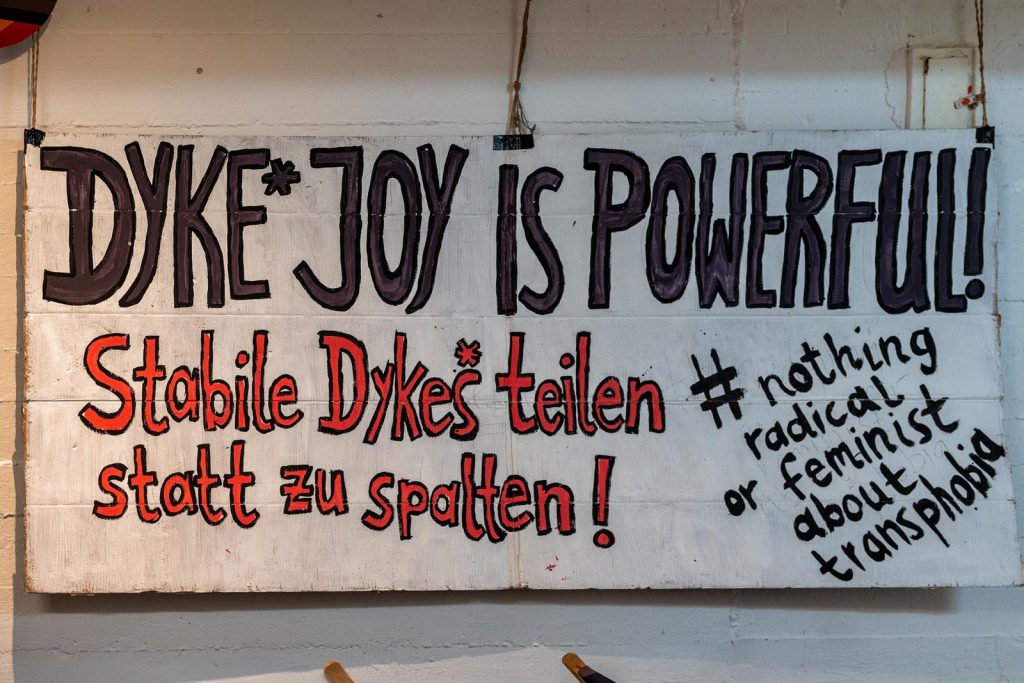 DYKE* JOY IS POWERFUL!
Stabile Dykes* teilen
statt zu spalten!
#nothing
radical
or feminist
about
transphobia